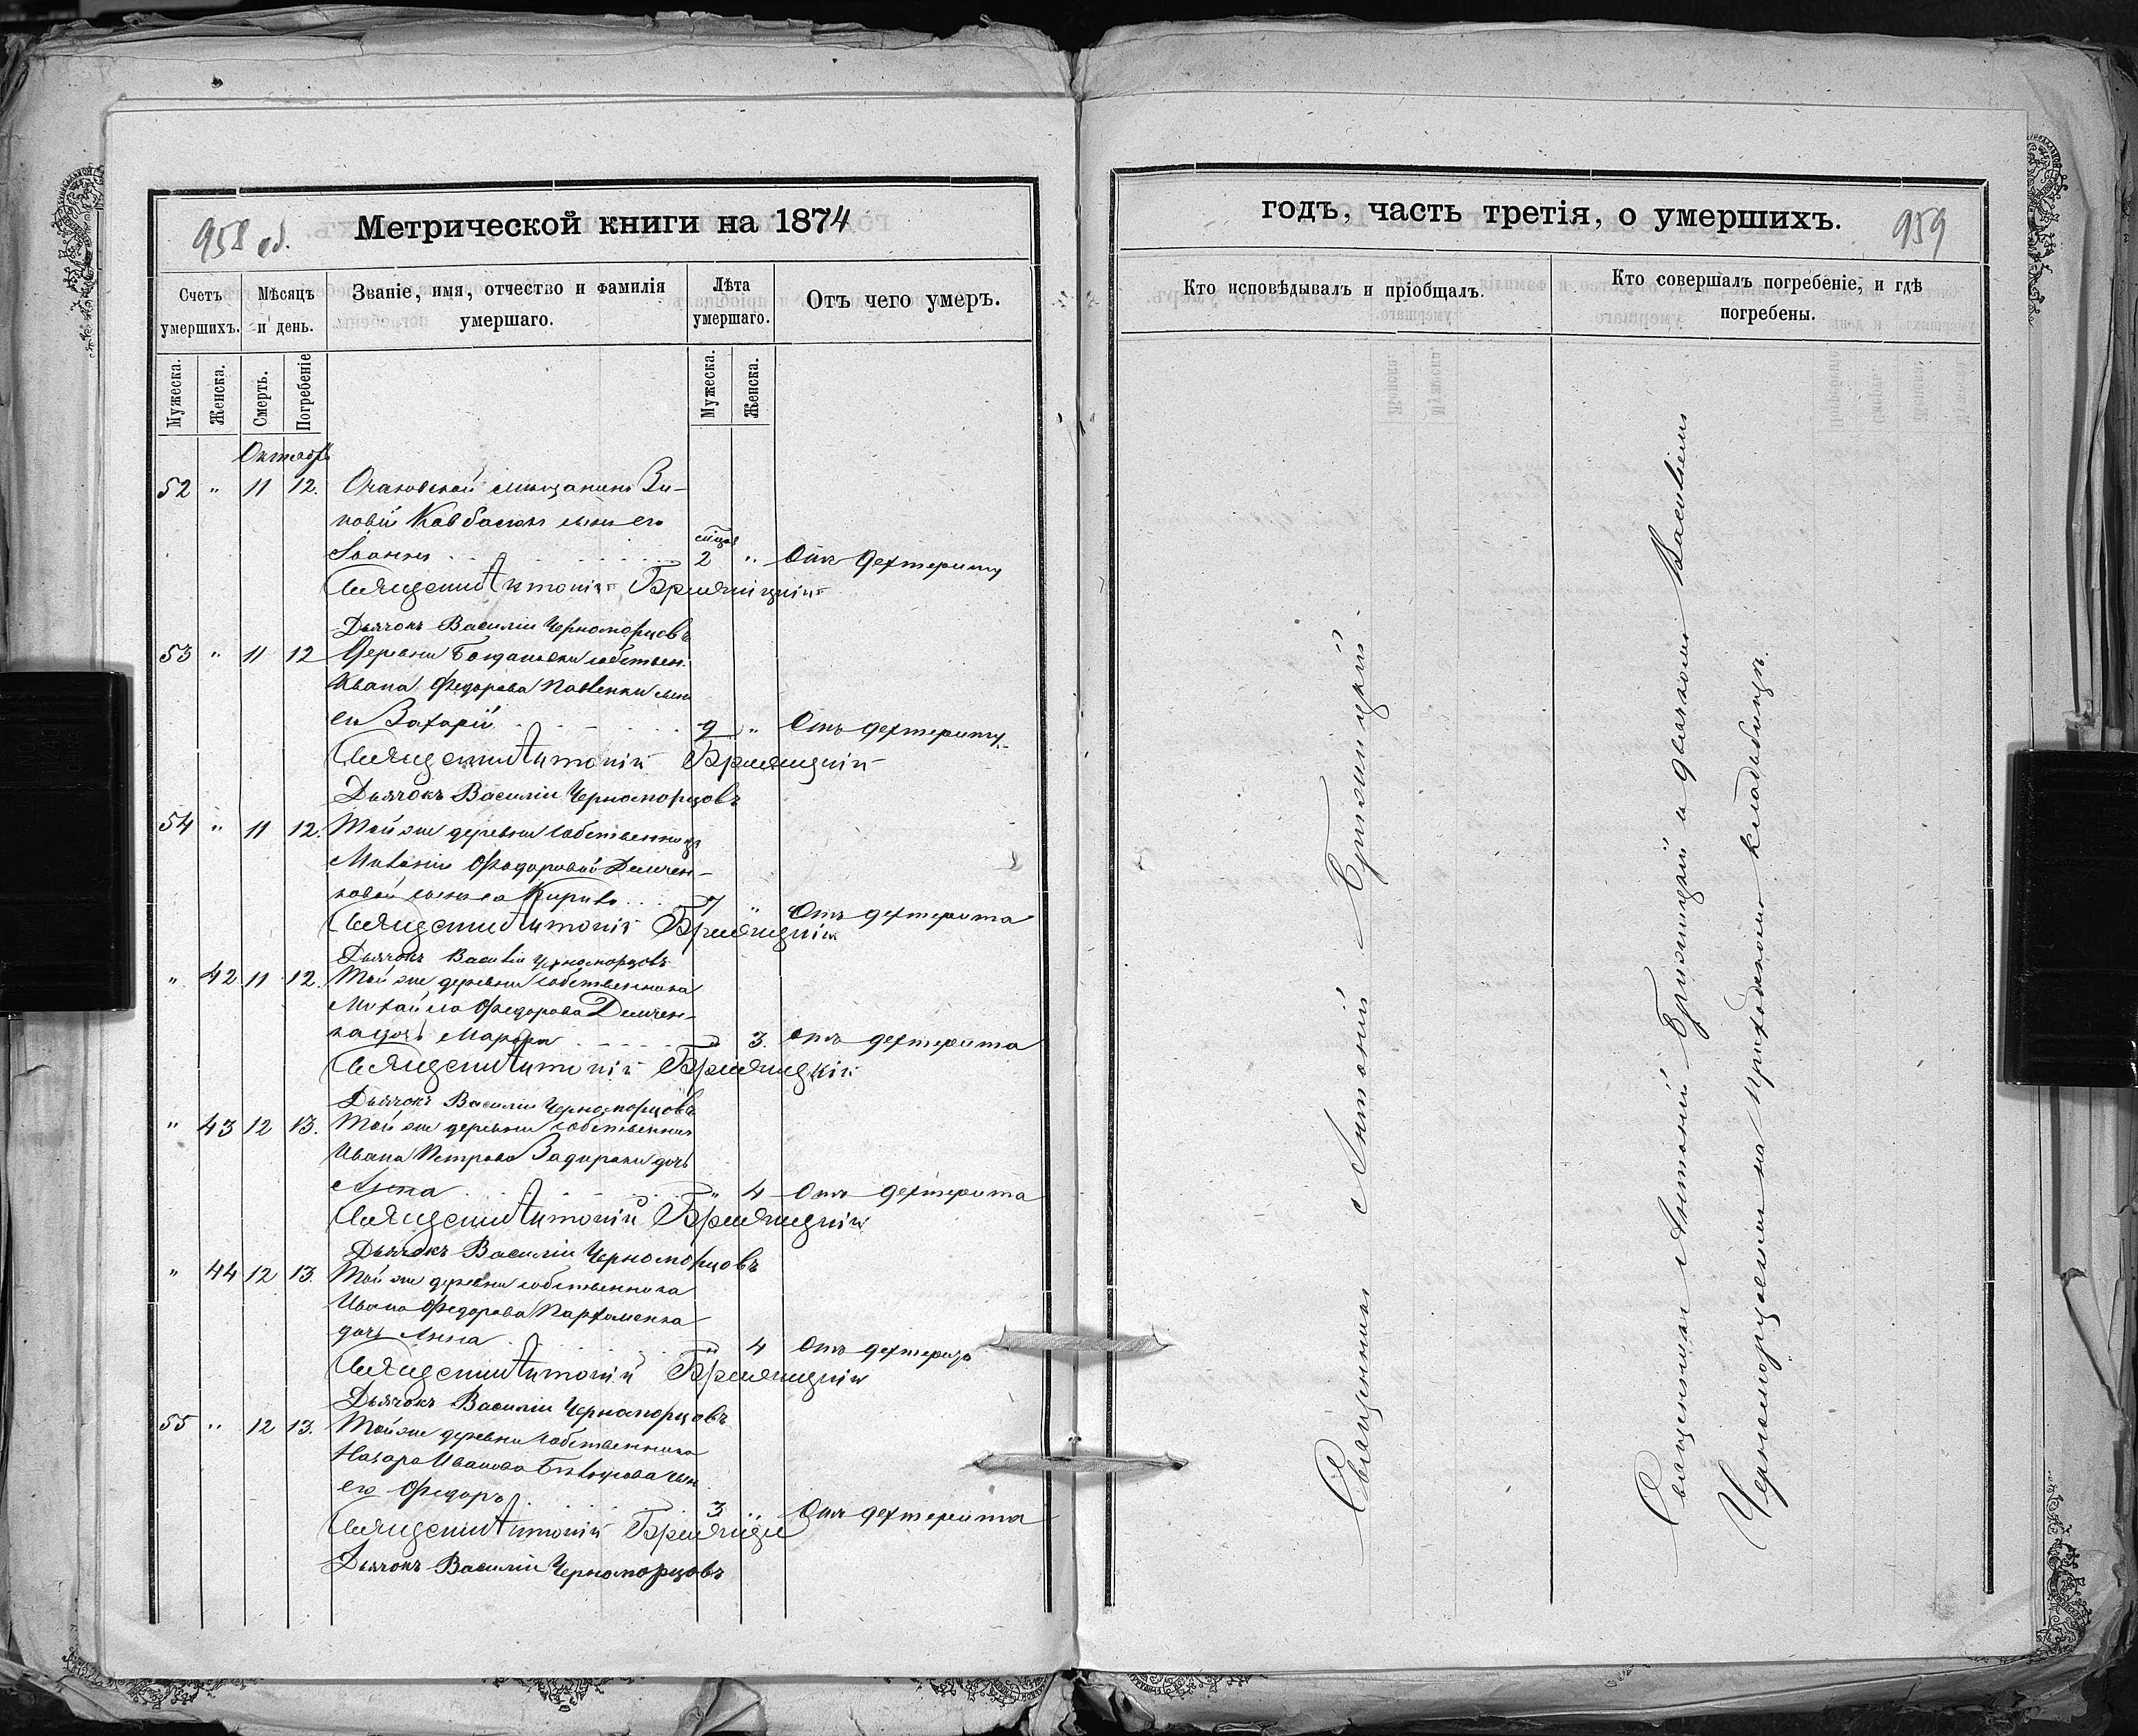 958 об.
Метрической книги на 1874
Счетъ умершихъ.
Мѣсяцъ и день.
Званіе, имя, отчество и фамилія умершаго.
Лѣта умершаго.
Отъ чего умеръ.
Мужеска.
Женска.
Смерть.
Погребеніе
Мужеска.
Женска.
Октябрь
52 " 11 12. Очаковской мещанинъ Зи-
новій сынъ его
Іоаннъ 2 " Отъ дефтериту
Священник Антоній Бржезицкій
Дьячокъ Василій Черноморцовъ
53 " 11 12 Деревни Богдановки собствен.
Ивана Федорова Павленки сынъ
его Захарій 9 " Отъ дефтериту
Священник Антоній Бржезицкій
Дьячокъ Василій Черноморцовъ
54 " 11 12. Той же деревни собственницы
Федоровой Демчен-
ковой сынъ ея Кирилъ 7 " Отъ дефтерита
Священник Антоній Бржезицкій
Дьячокъ Василій Черноморцовъ
" 42 11 12. Той же деревни собственника
Михайла Федорова Демчен-
ка дочь Марфа " 3. отъ дефтерита
Священник Антоній Бржезицкій
Дьячокъ Василій Черноморцовъ
" 43 12 13. Той же деревни собственник
Ивана Петрова Задираки дочь
Анна " 4 Отъ дефтерита
Священник Антоній Бржезицкій
Дьячокъ Василій Черноморцовъ
" 44 12 13. Той же деревни собственника
Ивана Федорова Пархоменка
дочь Анна " 4 Отъ дефтерита
Священник Антоній Бржезицкій
Дьячокъ Василій Черноморцовъ
55 " 12 13. Той же деревни собственника
Назара Иванова сын
его Федоръ 3 " Отъ дефтерита
Священник Антоній
Дьячокъ Василій Черноморцовъ
годъ, часть третія, о умершихъ.
959
Кто исповѣдывалъ и пріобщалъ.
Кто совершалъ погребеніе, и гдѣ погребены.
Священникъ Антоній Бржезицкій
Священникъ Антоній Бржезицкій и дьячкомъ Василіемъ
Черноморцовымъ на приходскомъ кладбищѣ.